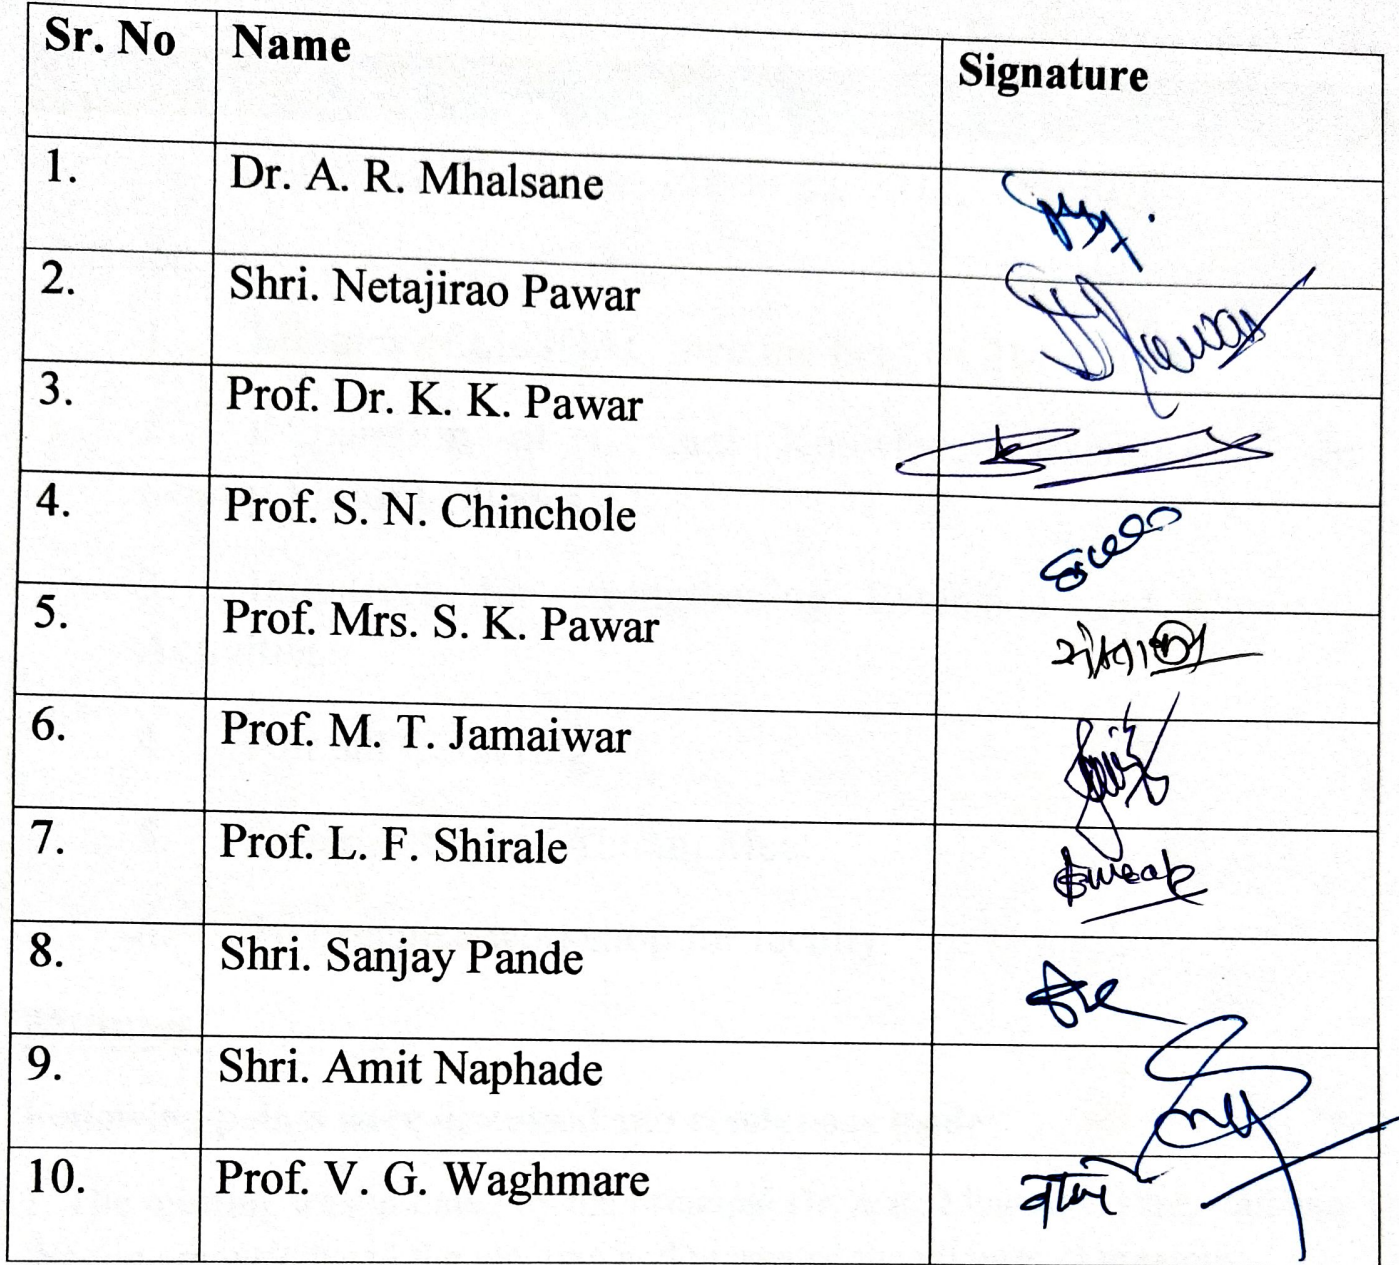 Sr. No Name Signature
1. Dr. A. R. Mhalsane
2. Shri. Netajirao Pawar
3. Prof. Dr. K. K. Pawar
4. Prof. S. N. Chinchole
5. Prof. Mrs. S. K. Pawar
6. Prof. M. T. Jamaiwar
7. Prof. L. F. Shirale
8. Shri. Sanjay Pande
9. Shri. Amit Naphade
10. Prof. V. G. Waghmare